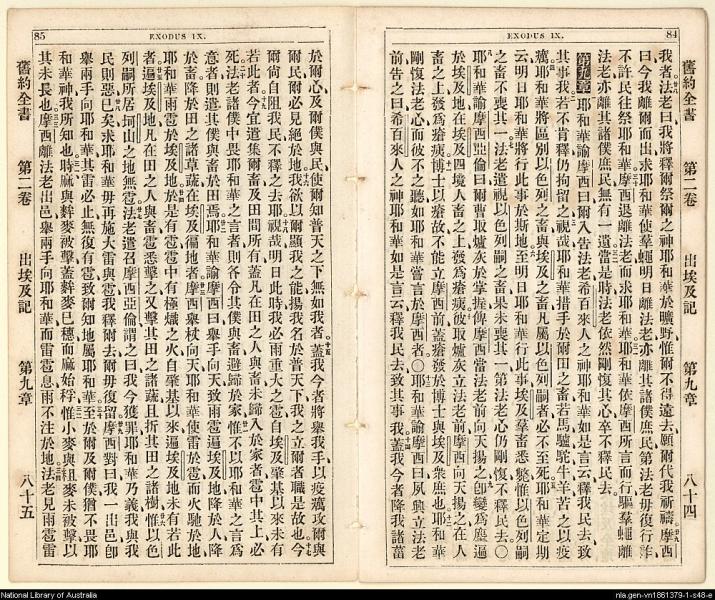 84
EXODUS IX.
舊約全書 第二卷 出埃及記 第九章 八十四
我者法老曰我將釋爾祭爾之神耶和華於曠野惟爾不得遠去願爾代我祈禱摩西
曰今我離爾而出求耶和華使羣蠅明日離法老亦離其諸僕庶民第法老毋復行詐
不許民往祭耶和華摩西退離法老而求耶和華耶和華依摩西所言而行驅羣蠅離
法老亦離其諸僕庶民無有一遺當是時法老依然剛愎其心卒不釋民去
第九章耶和華諭摩西曰爾入告法老希百來人之神耶和華如是言云釋我民去致
其事我若不肯釋仍拘留之視哉耶和華措手於爾田之畜若馬驢駝牛羊苦之以疫
癘耶和華將區别以色列之畜與埃及之畜凡屬以色列嗣者必不至死耶和華定期
云明日耶和華將行此事於斯地至明日耶和華行此事埃及羣畜悉斃惟以色列嗣
之畜不喪其一法老遣視以色列嗣之畜果未喪其一第法老心仍剛愎不釋民去〇
耶和華諭摩西亞倫曰爾曹取爐灰於掌握俾摩西當法老前向天揚之卽變爲塵遍
於埃及地在埃及四境人畜之上發爲瘡痍彼取爐灰立法老前摩西向天揚之在人
畜之上發爲瘡痍博士以瘡故不能立摩西前蓋瘡發於博士與埃及衆庶也耶和華
剛愎法老心而彼不之聽如耶和華嘗言於摩西者〇耶和華諭摩西曰夙興立法老
前告之曰希百來人之神耶和華如是言云釋我民去致其事我蓋我今者降我諸菑
85
EXODUS IX.
於爾心及爾僕與民使爾知普天之下無如我者蓋我今者將舉我手以疫癘攻爾與
爾民爾必見絶於地我欲以爾顯我之能揚我名於普天下我之立爾者職是故也今
爾尙自阻我民不釋之去耶視哉明日此時我必雨重大之雹自埃及肇基以來未有
若此者今宜遣集爾畜及田間所有蓋凡在田之人與畜未歸入於家者雹中其上必
死法老諸僕中畏耶和華之言者則各令其僕與畜避歸於家惟不以耶和華之言爲
意者則遺其僕與畜於田焉耶和華諭摩西曰舉手向天致雨雹遍埃及地降於人降
於畜降於田之諸草蔬在埃及徧地者摩西舉杖向天耶和華使雷於雹而火馳於地
耶和華雨雹於埃及地於是有雹雹中有極熾之火自肇基以來遍埃及地未有若此
者遍埃及地凡在田之人與畜雹悉擊之又擊其田之諸蔬且折其田之諸樹惟以色
列嗣所居坷山之地無雹法老遣召摩西亞倫謂之曰我今獲罪耶和華乃義我與我
民則惡已矣求耶和華毋再施大雷與雹我釋爾去爾毋復留摩西對曰我一出邑卽
舉兩手向耶和華其雷必止無復有雹致爾知地屬耶和華至於爾及爾僕猶不畏耶
和華神我所知也時麻與麰麥被擊蓋麰麥已穗而麻始稃惟小麥與粗麥未被擊以
其未長也摩西離法老出邑舉兩手向耶和華而雷雹息雨不注於地法老見雨雹雷
舊約全書 第二卷 出埃及記 第九章 八十五
National Library of Australia
nla.gen-vn1861379-1-s48-e